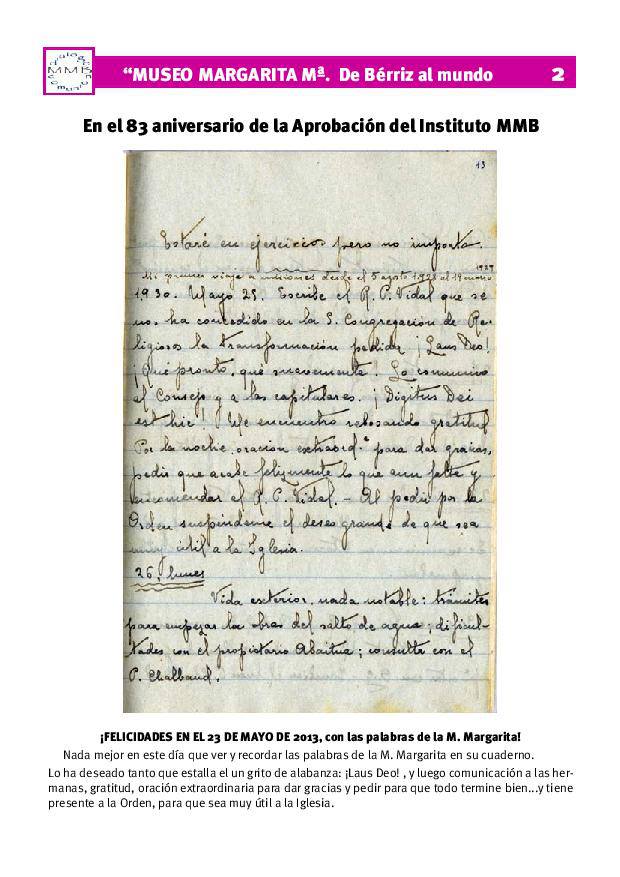 MMB
“MUSEO MARGARITA Mª. De Bérriz al mundo
2
En el 83 aniversario de la Aprobación del Instituto MMB
13
Estaré en ejercicios pero no importa.
1929
Mi primer viaje a misiones desde el 5 agosto 1928 al 19 enero
1930. Mayo 25. Escribe el R. P. Vidal que se
nos ha concedido en la S. Congregación de Re-
ligiosos la transformación pedida ¡Laus Deo!
¡Qué pronto, qué suavemente! Lo comunico
al Consejo y a las capitulares. ¡Digitus Dei
est hic! Me encuentro rebosando gratitud
Por la noche oración extraord.ª para dar gracias,
pedir que acabe felizmente lo que aun falta y
encomendar al R. P. Vidal. - Al pedir por la
Orden suspéndeme el deseo grande de que sea
muy útil a la Iglesia.
26, lunes
Vida exterior, nada notable: trámites
para empezar las obras del salto de agua; dificul-
tades con el propietario Abaitua; consulta con el
P. Chalbaud.
¡FELICIDADES EN EL 23 DE MAYO DE 2013, con las palabras de la M. Margarita!
Nada mejor en este día que ver y recordar las palabras de la M. Margarita en su cuaderno.
Lo ha deseado tanto que estalla el un grito de alabanza: ¡Laus Deo! , y luego comunicación a las her-
manas, gratitud, oración extraordinaria para dar gracias y pedir para que todo termine bien...y tiene
presente a la Orden, para que sea muy útil a la Iglesia.